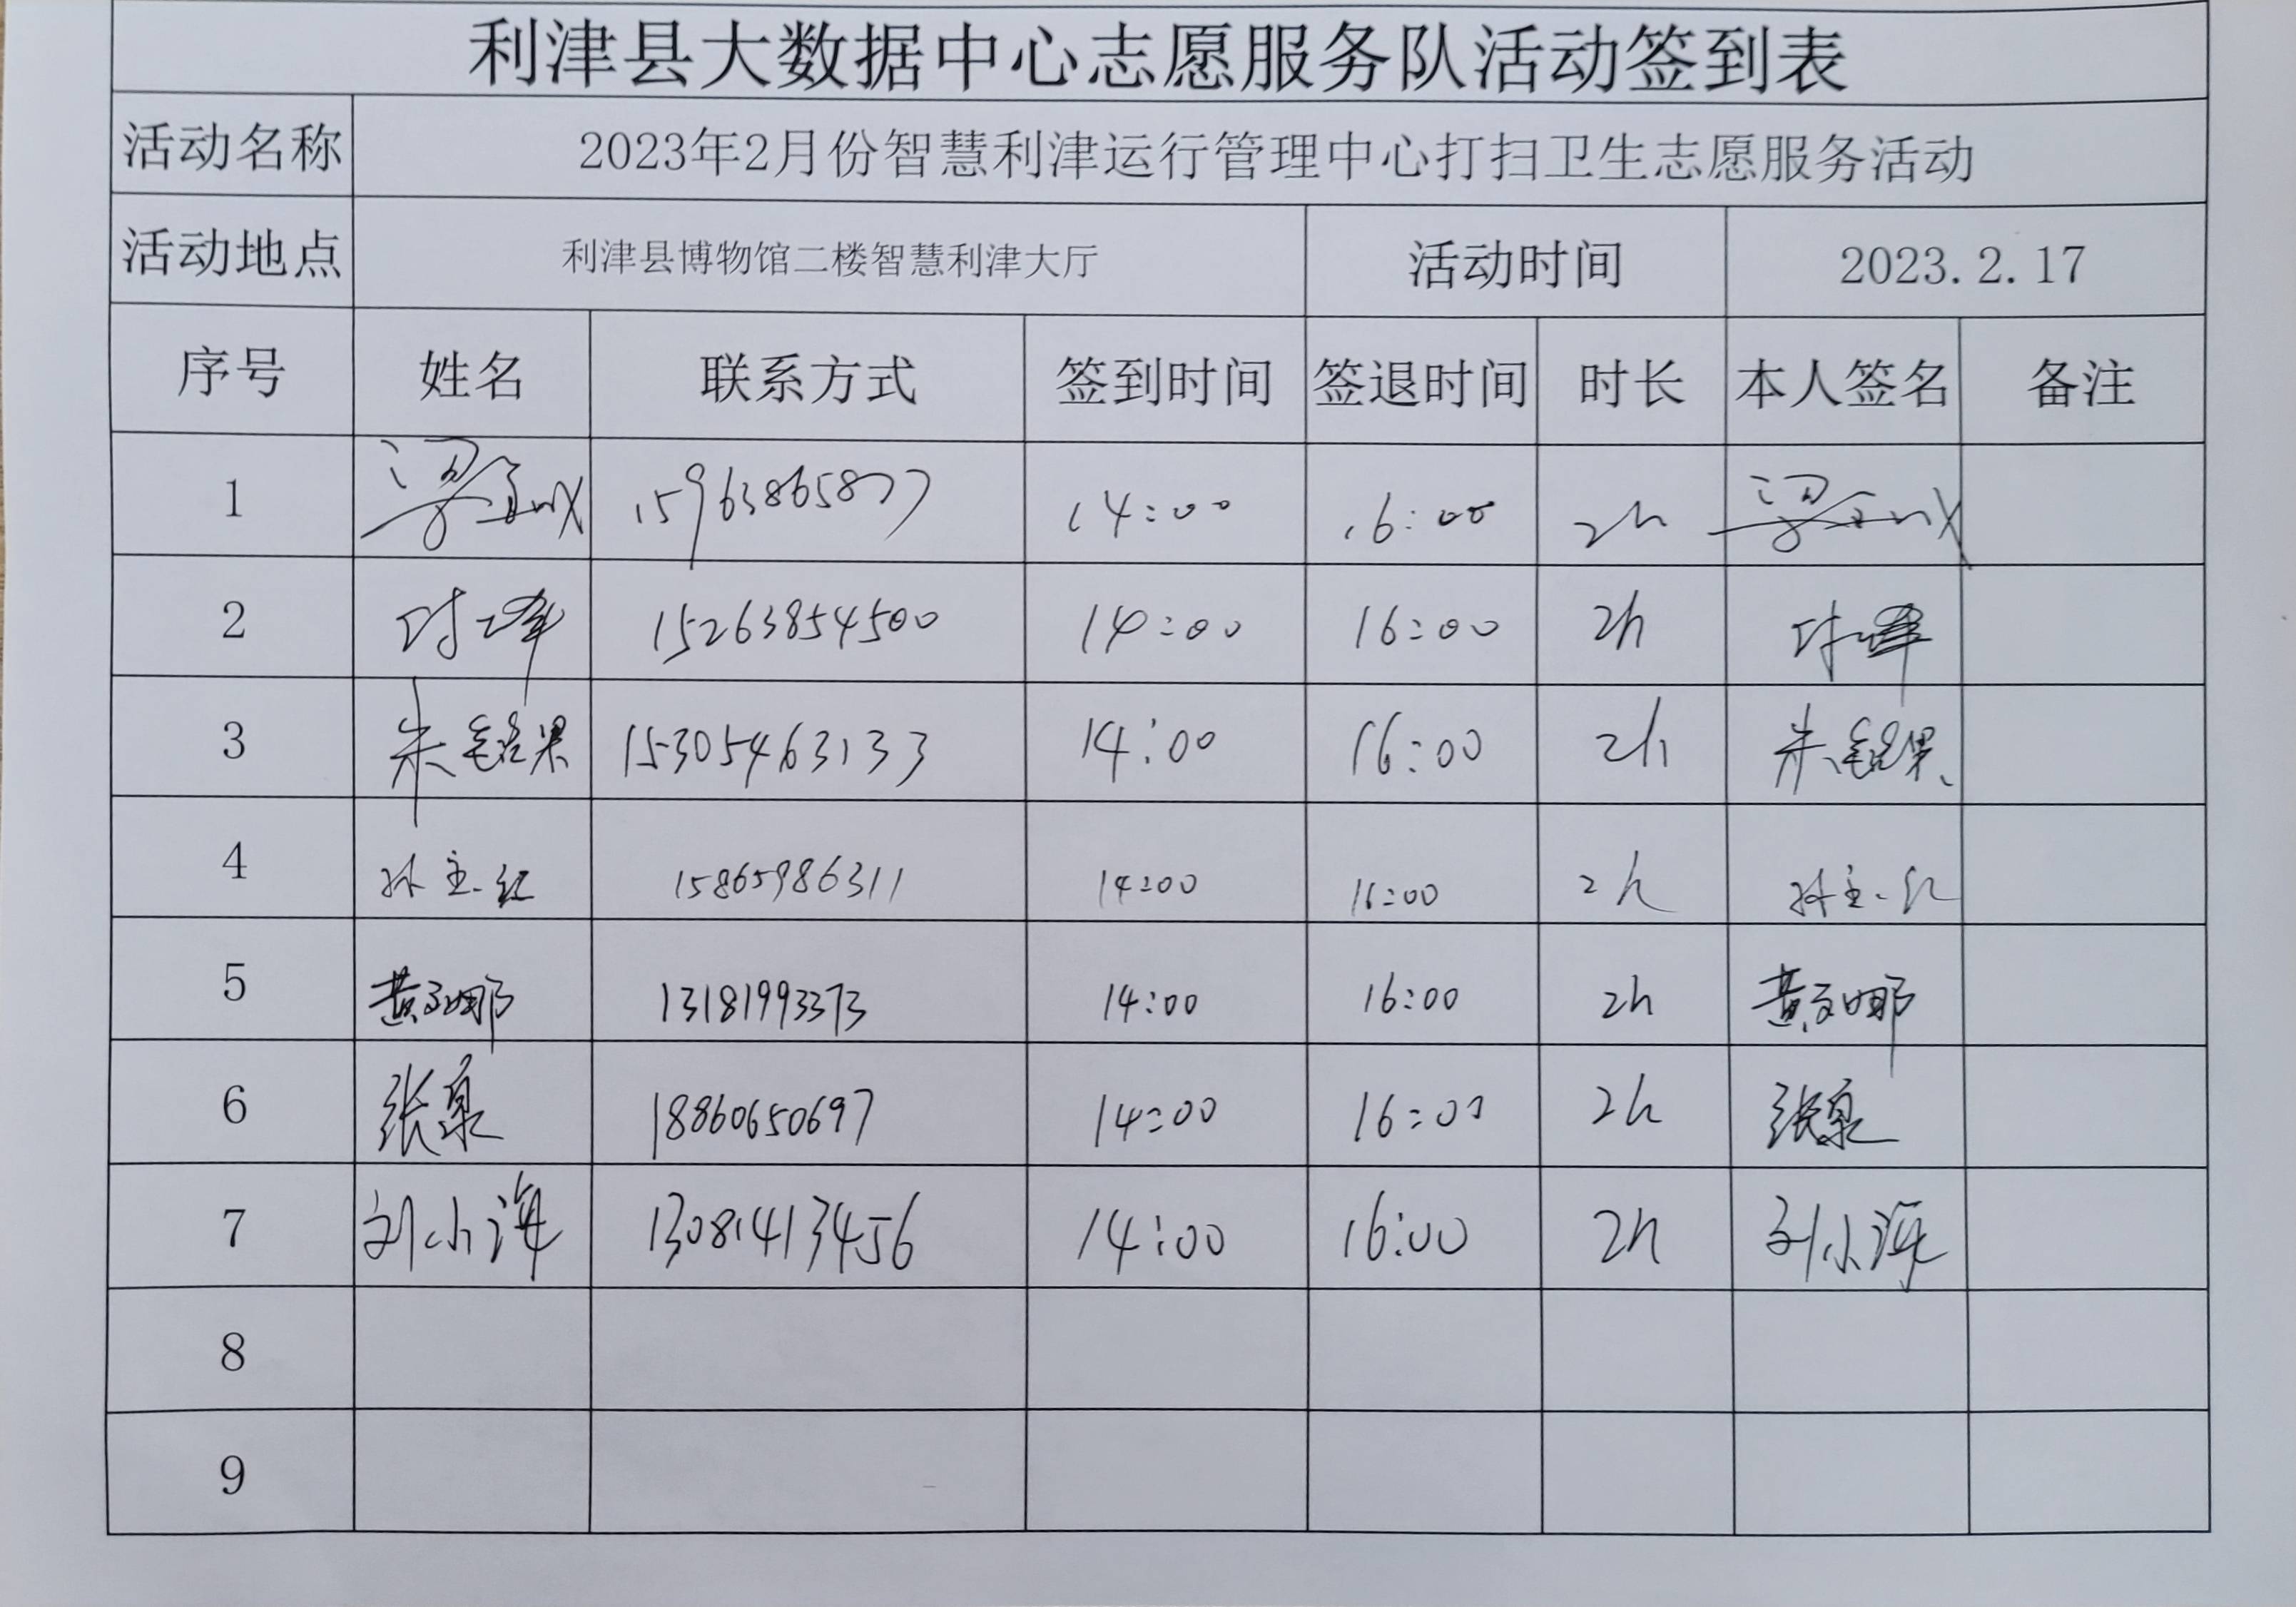 利津县大数据中心志愿服务队活动签到表
活动名称 2023年2月份智慧利津运行管理中心打扫卫生志愿服务活动
活动地点 利津县博物馆二楼智慧利津大厅 活动时间 2023.2.17
序号 姓名 联系方式 签到时间 签退时间 时长 本人签名 备注
1 15963865877 14:00 16:00 2h
2 15263854500 14:00 16:00 2h
3 朱铭果 15305463133 14:00 16:00 2h 朱铭果
4 孙主红 15865986311 14:00 16:00 2h 孙主红
5 13181993373 14:00 16:00 2h
6 张泉 18860650697 14:00 16:00 2h 张泉
7 刘小海 13081413456 14:00 16:00 2h 刘小海
8
9